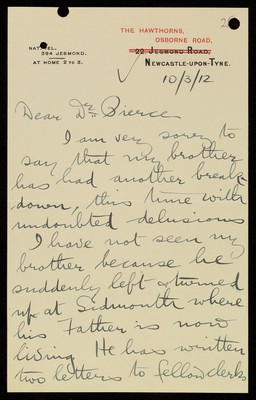 2
THE HAWTHORNS,
OSBORNE ROAD,
NAT. TEL.
394 JESMOND.
AT HOME 2 to 3.
22 Jesmond Road,
Newcastle-upon-Tyne.
10/3/12
Dear Dr Pierce
I am very sorry to
say that my brother
has had another break-
down, this time with
undoubted delusions
I have not seen my
brother because he
suddenly left & turned
up at Sidmouth where
his Father is now
living He has written
two letters to fellow clerks